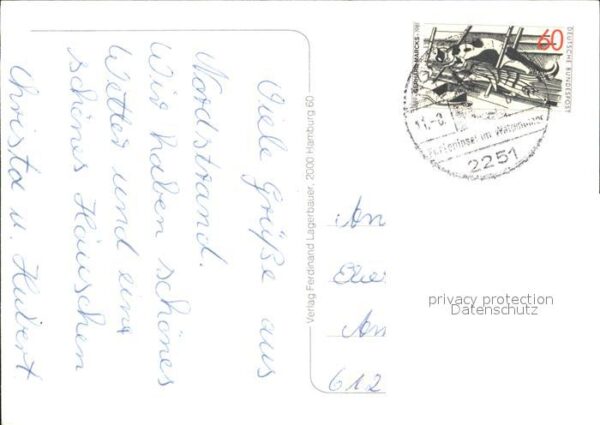 Viele Grüße aus
Nordstrand.
Wir haben schönes
Wetter und ein
schönes Häuschen
Christa u. Hubert
Verlag Ferdinand Lagerbauer, 2000 Hamburg 60
60
DEUTSCHE BUNDESPOST
GERHARD MARCKS 1981
11.-8.
Ferieninsel im Wattenmeer
2251
An
612
privacy protection
Datenschutz